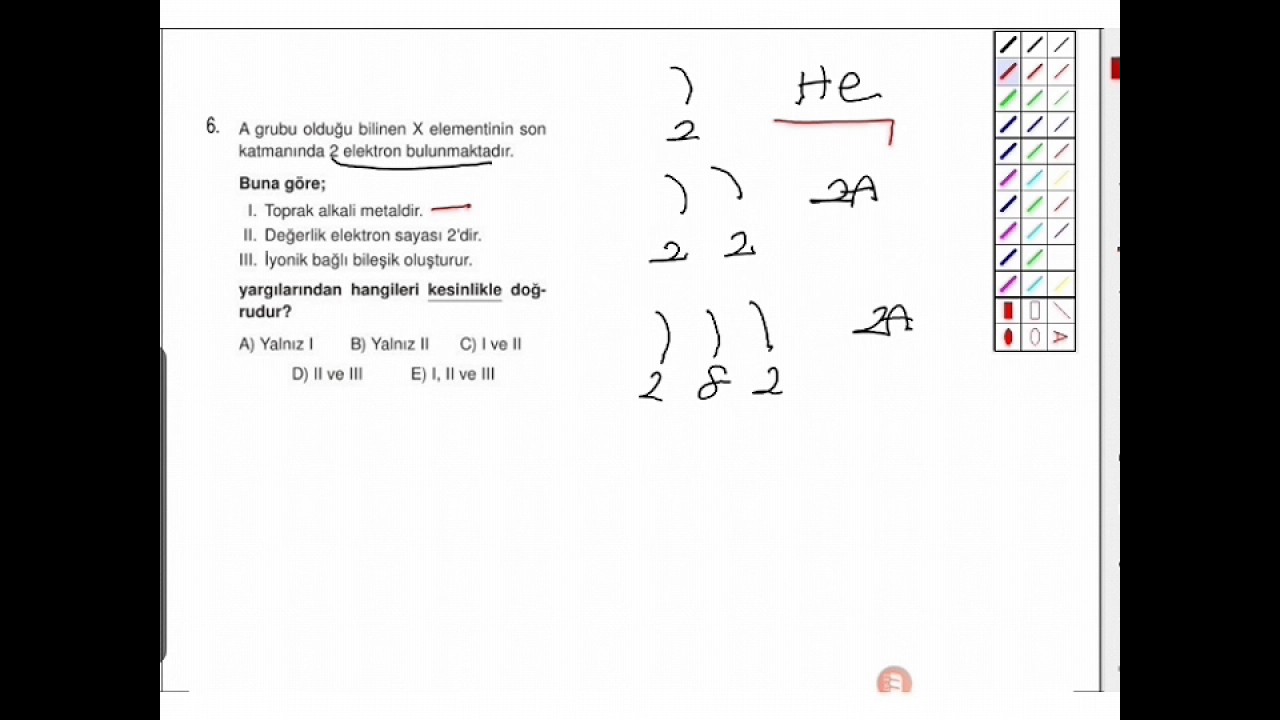 6. A grubu olduğu bilinen X elementinin son
katmanında 2 elektron bulunmaktadır.
Buna göre;
I. Toprak alkali metaldir.
II. Değerlik elektron sayası 2'dir.
III. İyonik bağlı bileşik oluşturur.
yargılarından hangileri kesinlikle doğ-
rudur?
A) Yalnız I B) Yalnız II C) I ve II
D) II ve III E) I, II ve III
) He
2
) ) 2A
2 2
) ) ) 2A
2 8 2